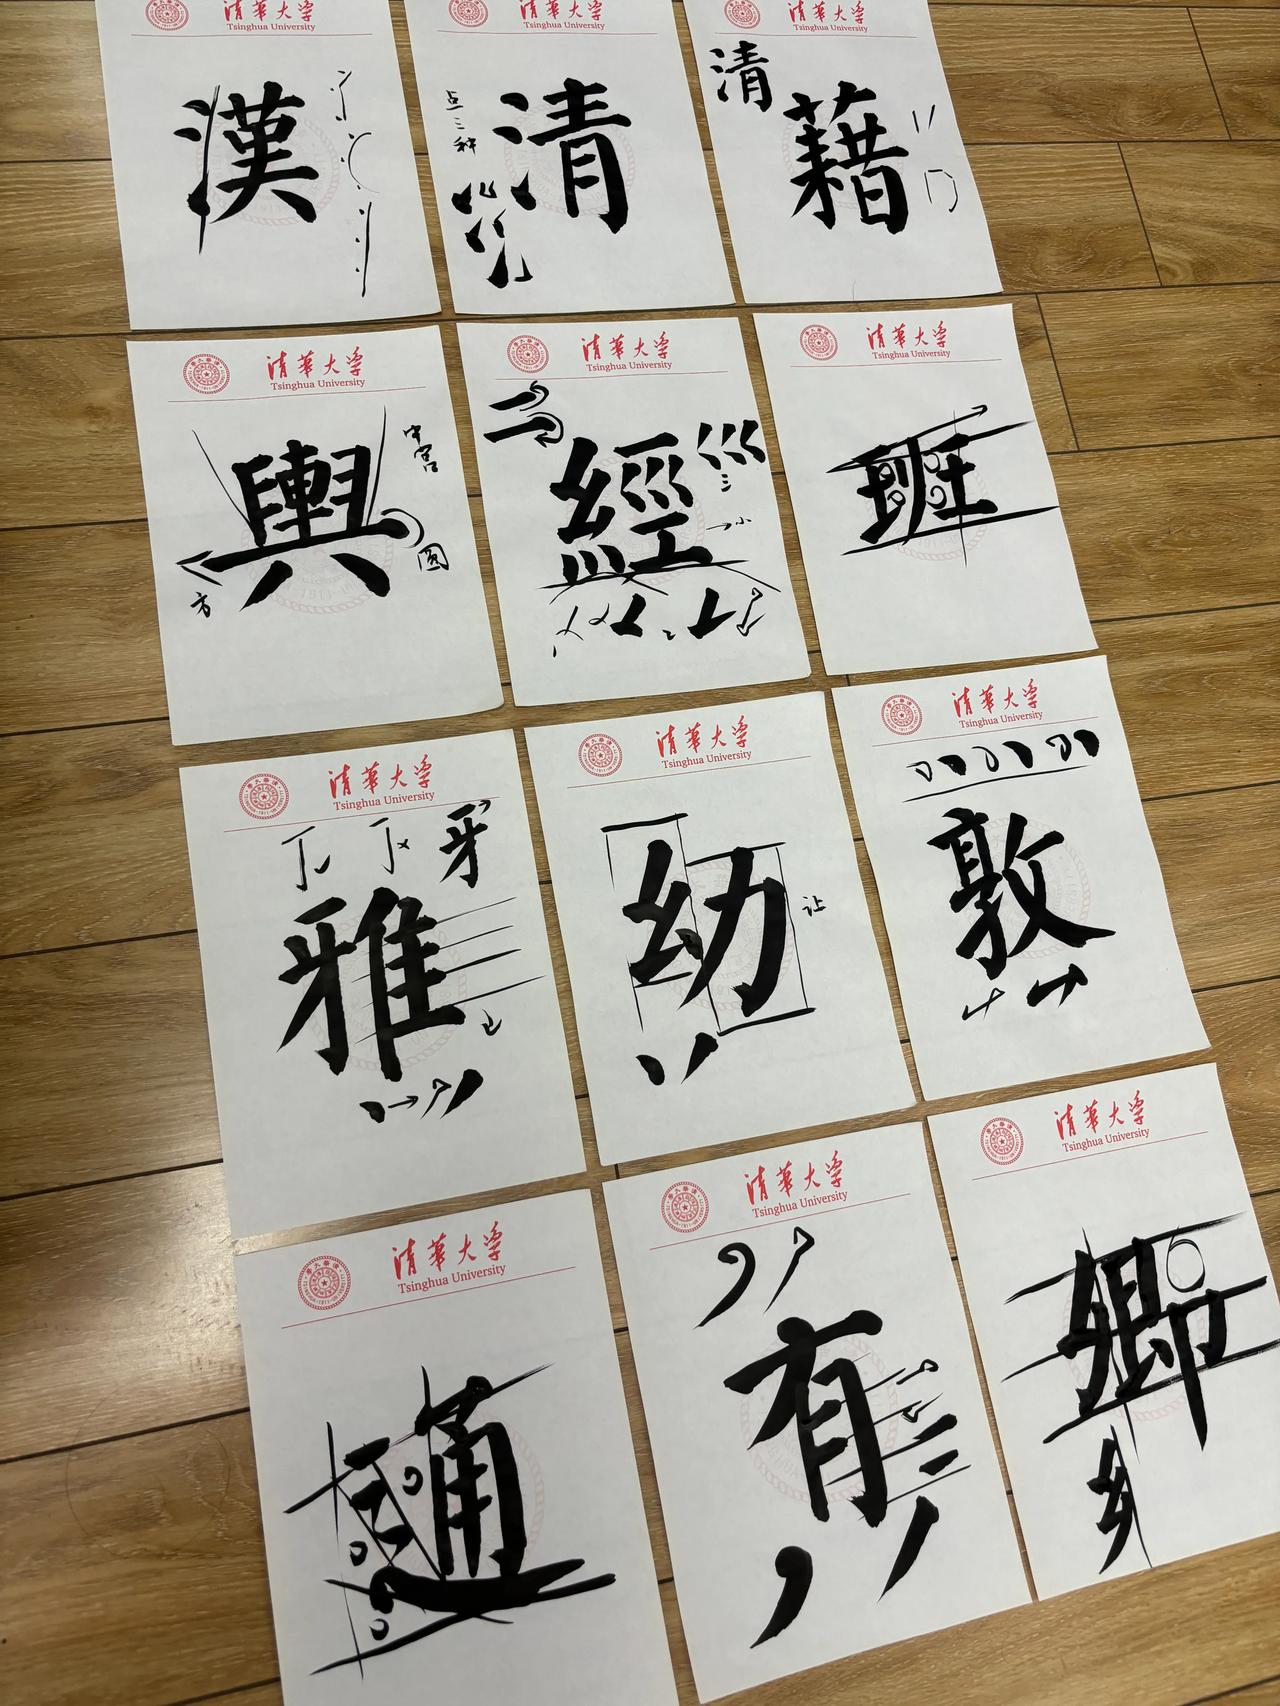 清華大学
Tsinghua University
漢
清華大学
Tsinghua University
点三种
清
清華大学
Tsinghua University
清
藉
清華大学
Tsinghua University
中宫
輿
圆
方
清華大学
Tsinghua University
經
小
清華大学
Tsinghua University
班
清華大学
Tsinghua University
牙
雅
清華大学
Tsinghua University
幼
让
清華大学
Tsinghua University
敦
清華大学
Tsinghua University
通
清華大学
Tsinghua University
有
清華大学
Tsinghua University
卿